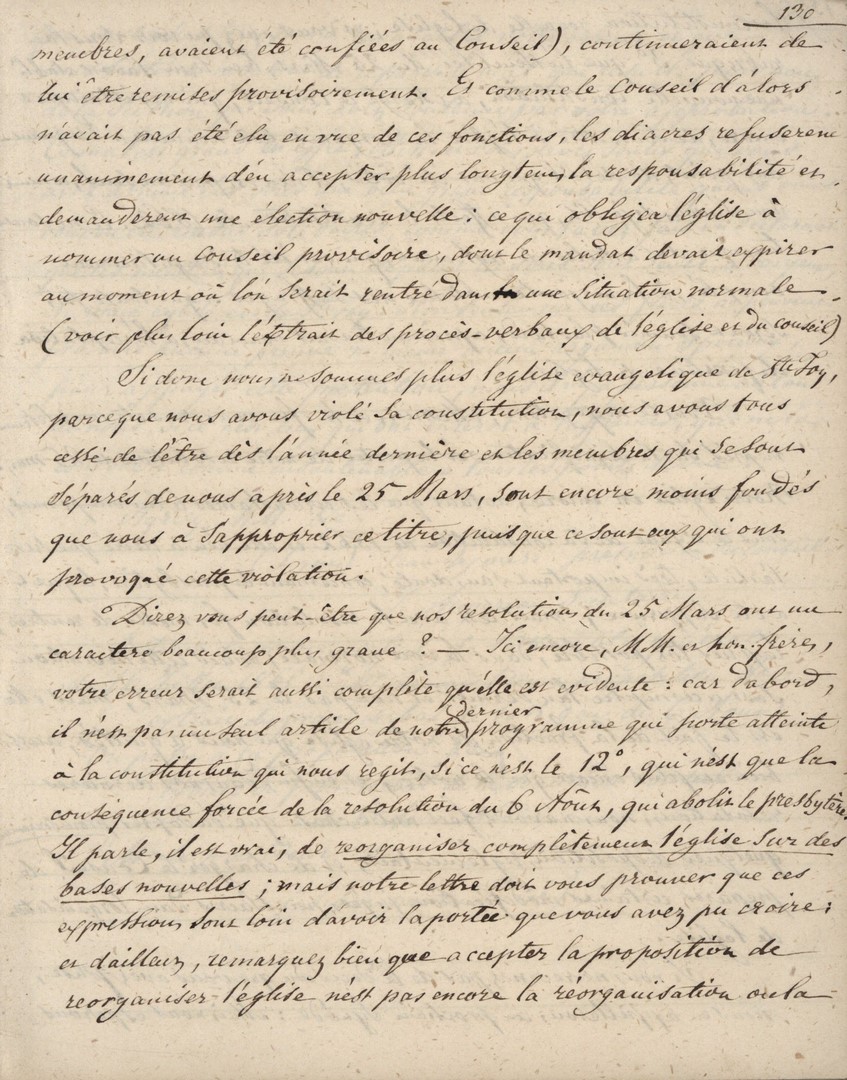 130
membres, avaient été confiées au Conseil), continueraient de
lui être remises provisoirement. Et comme le Conseil d'alors
n'avait pas été élu en vue de ces fonctions, les diacres refuserent
unanimement d'en accepter plus longtems la responsabilité et
demanderent une élection nouvelle : ce qui obligea l'église à
nommer un Conseil provisoire, dont le mandat devait expirer
au moment où l'on serait rentré dans une situation normale
(voir plus loin l'extrait des procès-verbaux de l'église et du conseil)
Si donc nous ne sommes plus l'église evangelique de Ste Foy,
parceque nous avons violé sa constitution, nous avons tous
cessé de l'être dès l'année dernière et les membres qui se sont
séparés de nous après le 25 Mars, sont encore moins fondés
que nous à s'approprier ce titre, puisque ce sont eux qui ont
provoqué cette violation.
Direz vous peut-être que nos resolutions du 25 Mars ont un
caractere beaucoup plus grave ? — Ici encore, MM. et hon. frères,
votre erreur serait aussi complète qu'elle est evidente : car dabord,
il n'est pas un seul article de notre dernier programme qui porte atteinte
à la constitution qui nous regit, si ce n'est le 12°, qui n'est que la
conséquence forcée de la resolution du 6 Aôut, qui abolit le presbytère.
Il parle, il est vrai, de reorganiser complètement l'église sur des
bases nouvelles ; mais notre lettre doit vous prouver que ces
expressions sont loin d'avoir la portée que vous avez pu croire ;
et d'ailleurs, remarquez bien que accepter la proposition de
reorganiser l'église n'est pas encore la réorganisation ou la